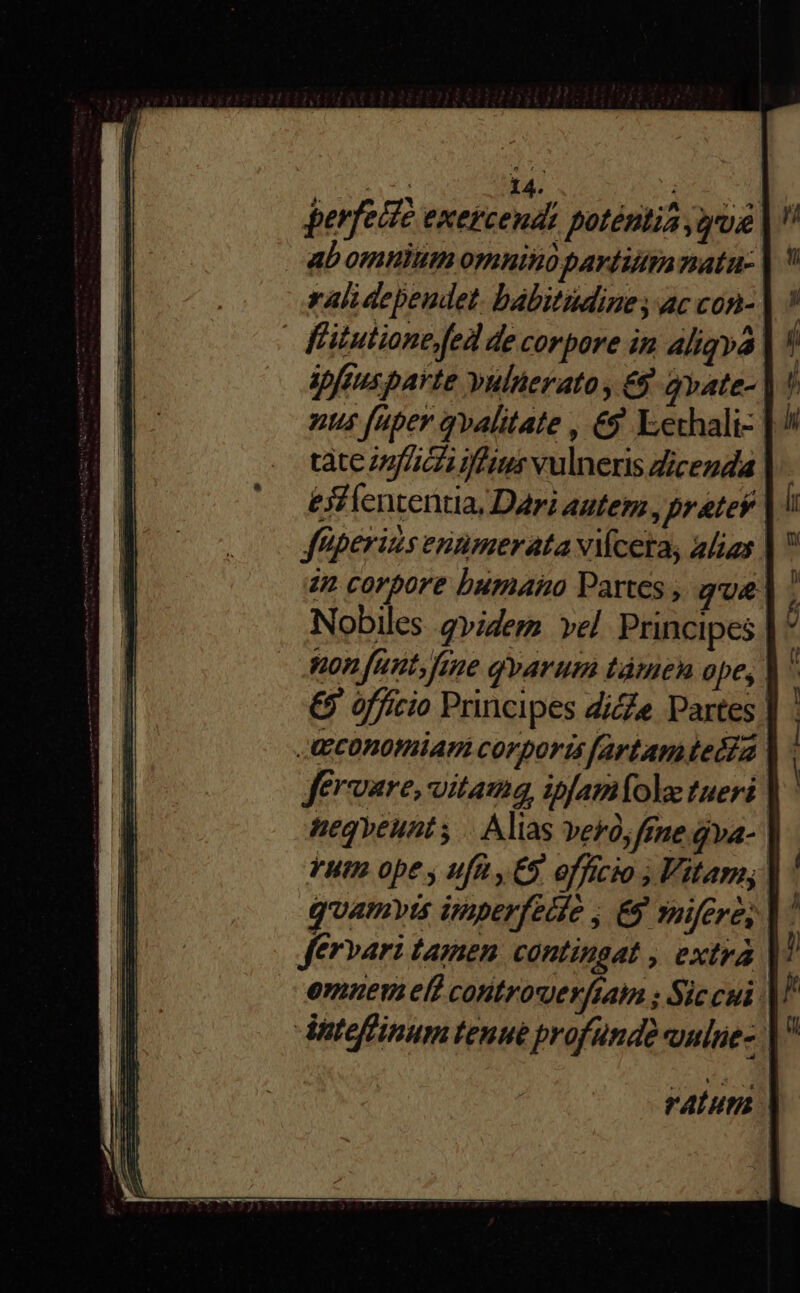 14.
perfectè exercendi potentiâ, qvæ
ab omnium omninò partium natu-
rali dependet habitudine, ac con-
ſtitutione, ſed de corpore in aliqvâ
ipſius parte vulnerato, & qvate-
nus ſuper qvalitate, & Lethali-
tate inflicti iſtius vulneris dicenda
eſt ſententia, Dari autem, præter
ſuperiùs enumerata viſcera, alias
in corpore humano Partes, qvæ
Nobiles qvidem vel Principes
non ſunt, ſine qvarum tamen ope,
& officio Principes dictæ Partes
œconomiam corporis ſartam tectã
ſervare, vitamq, ipſam ſolæ tueri
neqveunt; Alias verò, ſine qva-
rum ope, uſu, & officio, Vitam,
qvamvis imperfectè, & miſerè,
ſervari tamen contingat, extrà
omnem eſt controverſiam; Sic cui
inteſtinum tenue profundè vulne-
ratum